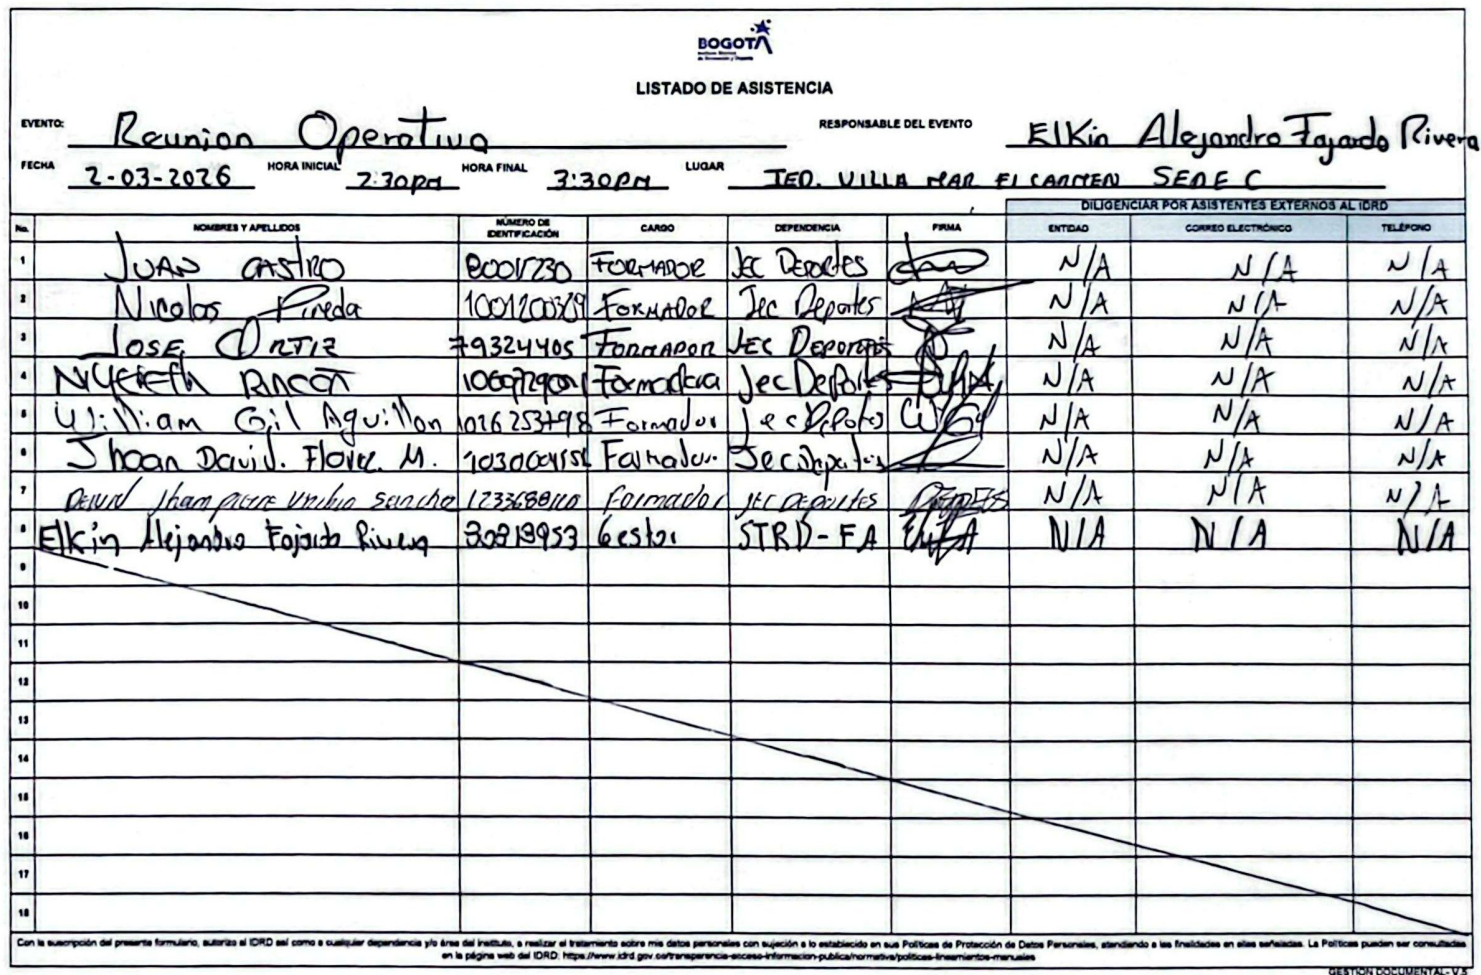 BOGOTÁ
LISTADO DE ASISTENCIA
EVENTO: Reunion Operativa RESPONSABLE DEL EVENTO Elkin Alejandro Fajardo Rivera
FECHA 2-03-2026 HORA INICIAL 2:30pm HORA FINAL 3:30pm LUGAR IED. VILLA MAR El CARMEN SEDE C
DILIGENCIAR POR ASISTENTES EXTERNOS AL IDRD
No. NOMBRES Y APELLIDOS NÚMERO DE IDENTIFICACIÓN CARGO DEPENDENCIA FIRMA ENTIDAD CORREO ELECTRÓNICO TELÉFONO
1 JUAN CASTRO 80017230 FORMADOR JEC DEPORTES N/A N/A N/A
2 Nicolas Pineda FORMADOR Jec Deportes N/A N/A N/A
3 JOSE ORTIZ 79324405 FORMADOR JEC DEPORTES N/A N/A N/A
4 RINCON Formadora Jec Deportes N/A N/A N/A
5 William Gil Aguillon Formador Jec Deportes N/A N/A N/A
6 Jhoan David. M. Formador Jec Deportes N/A N/A N/A
7 Formador JEC DEPORTES N/A N/A N/A
8 Elkin Alejandro Fajardo Rivera Gestor STRD-FA N/A N/A N/A
9
10
11
12
13
14
15
16
17
18
Con la suscripción del presente formulario, autorizo al IDRD así como a cualquier dependencia y/o área del instituto, a realizar el tratamiento sobre mis datos personales con sujeción a lo establecido en sus Políticas de Protección de Datos Personales, atendiendo a las finalidades en ellas señaladas. La Políticas pueden ser consultadas
en la página web del IDRD: https://www.idrd.gov.co/transparencia-acceso-informacion-publica/normativa/politicas-lineamientos-manuales
GESTIÓN DOCUMENTAL- V.2